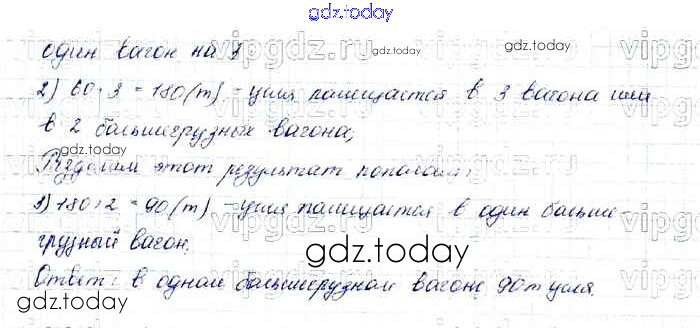 gdz.today
один вагон на 3
gdz.today
2) 60 · 3 = 180 (т) - угля помещается в 3 вагона или
в 2 большегрузных вагона;
Разделим этот результат пополам:
3) 180 : 2 = 90 (т) - угля помещается в один больше-
грузный вагон.
gdz.today
Ответ: в одном большегрузном вагоне 90 т угля.
gdz.today
gdz.today
vipgdz.ru